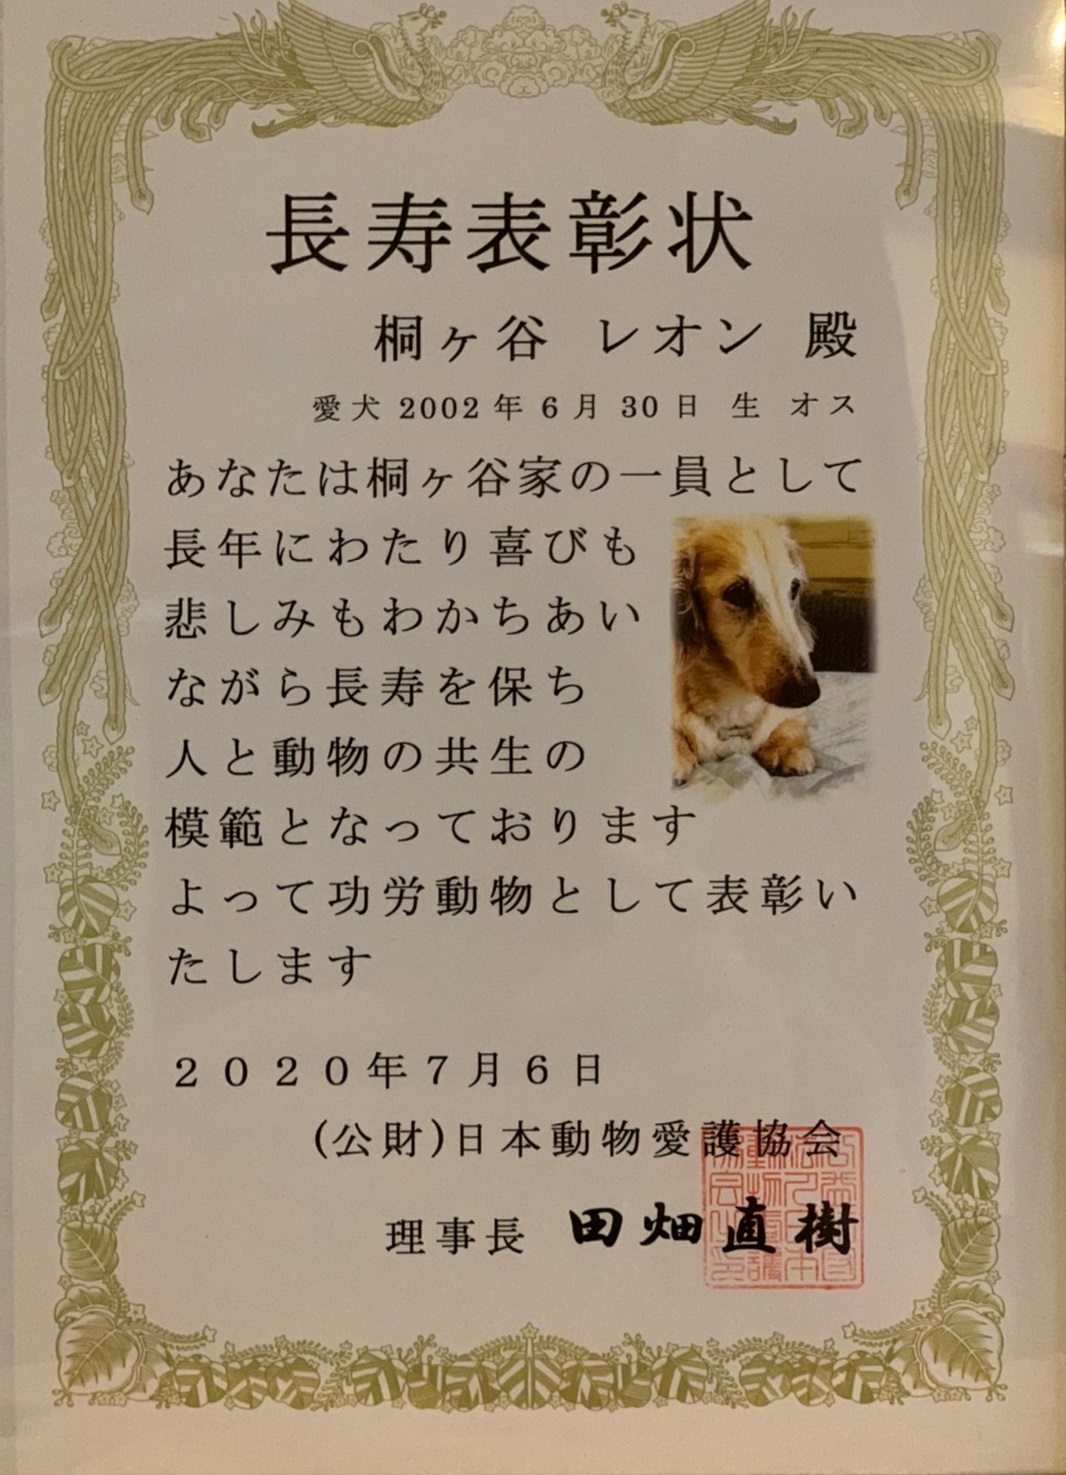 長寿表彰状
桐ヶ谷 レオン 殿
愛犬 2002年6月30日 生 オス
あなたは桐ヶ谷家の一員として
長年にわたり喜びも
悲しみもわかちあい
ながら長寿を保ち
人と動物の共生の
模範となっております
よって功労動物として表彰い
たします
２０２０年７月６日
(公財)日本動物愛護協会
理事長 田畑直樹